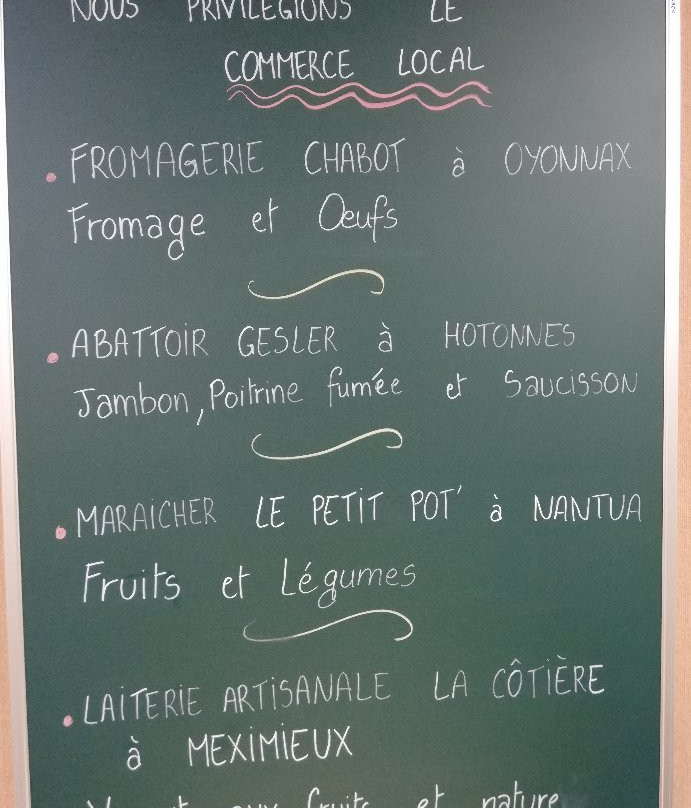 NOUS PRIVILÉGIONS LE
COMMERCE LOCAL
. FROMAGERIE CHABOT à OYONNAX
Fromage et Oeufs
. ABATTOIR GESLER à HOTONNES
Jambon, Poitrine fumée et Saucisson
. MARAICHER LE PETIT POT' à NANTUA
Fruits et Légumes
. LAITERIE ARTISANALE LA CÔTIÈRE
à MEXIMIEUX
aux fruits et nature